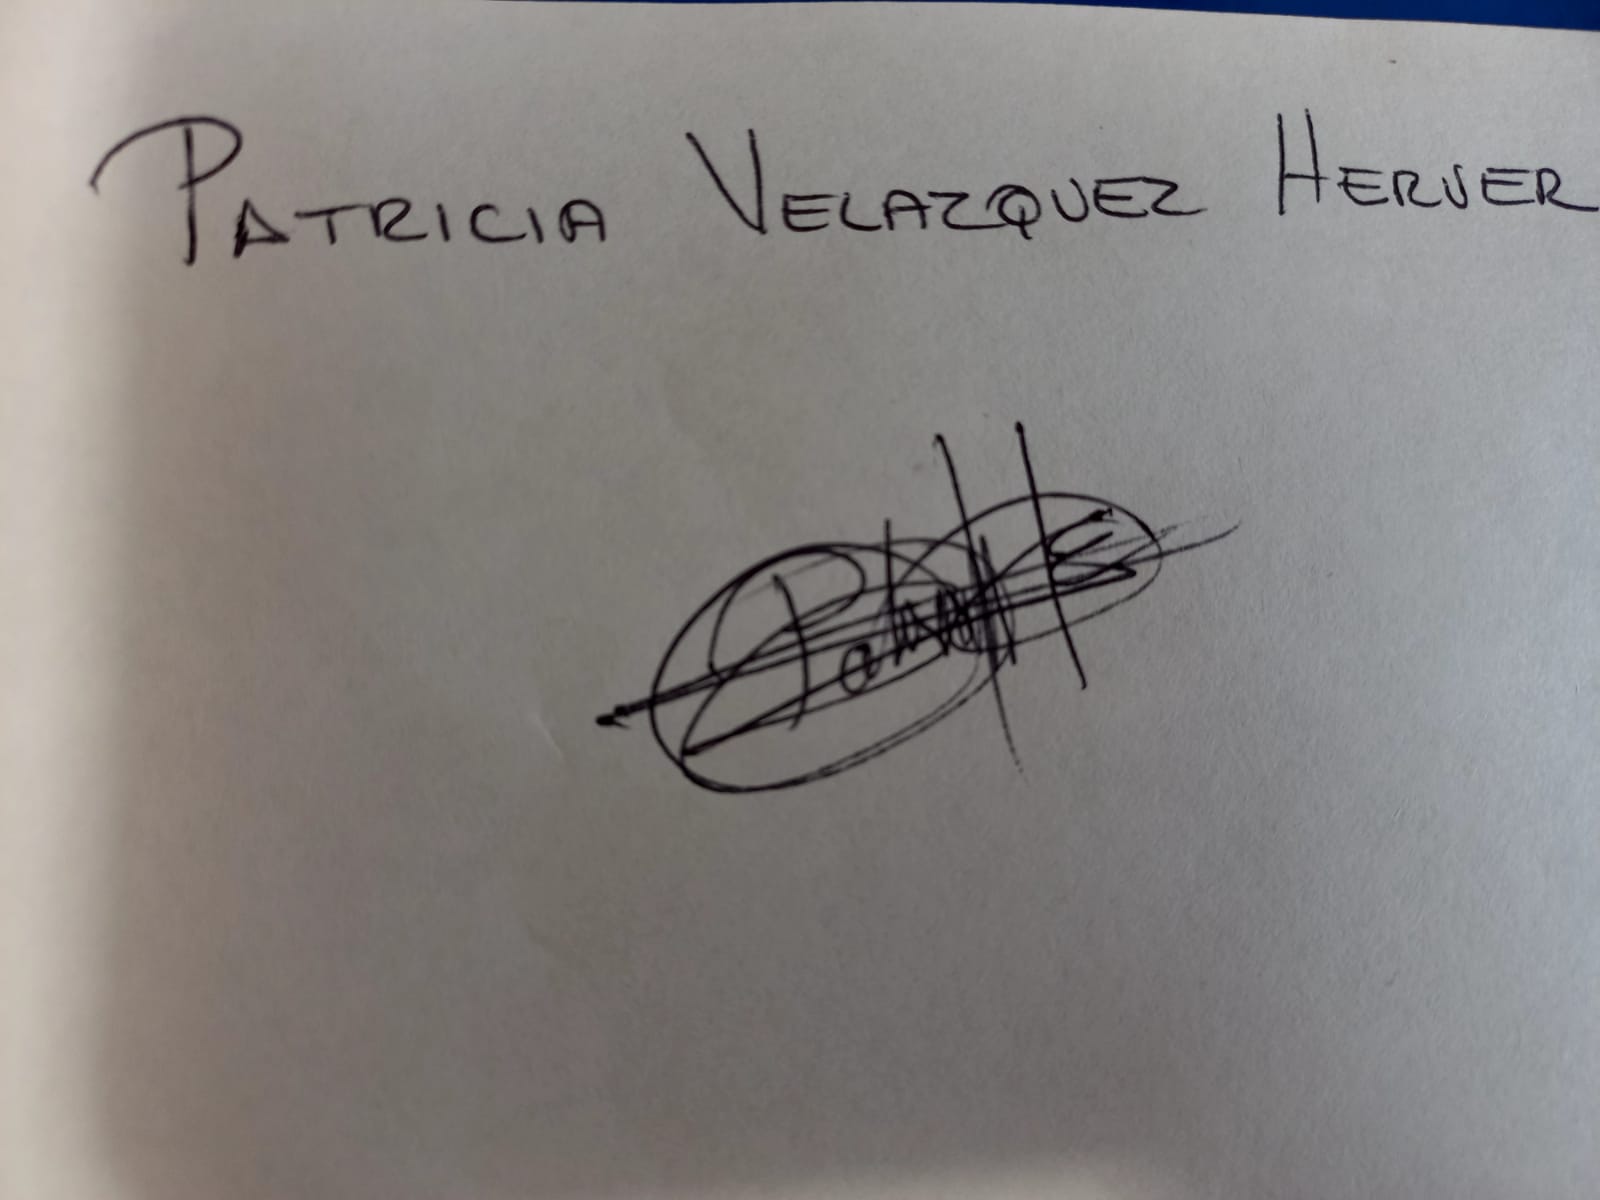 PATRICIA VELAZQUEZ HERVER